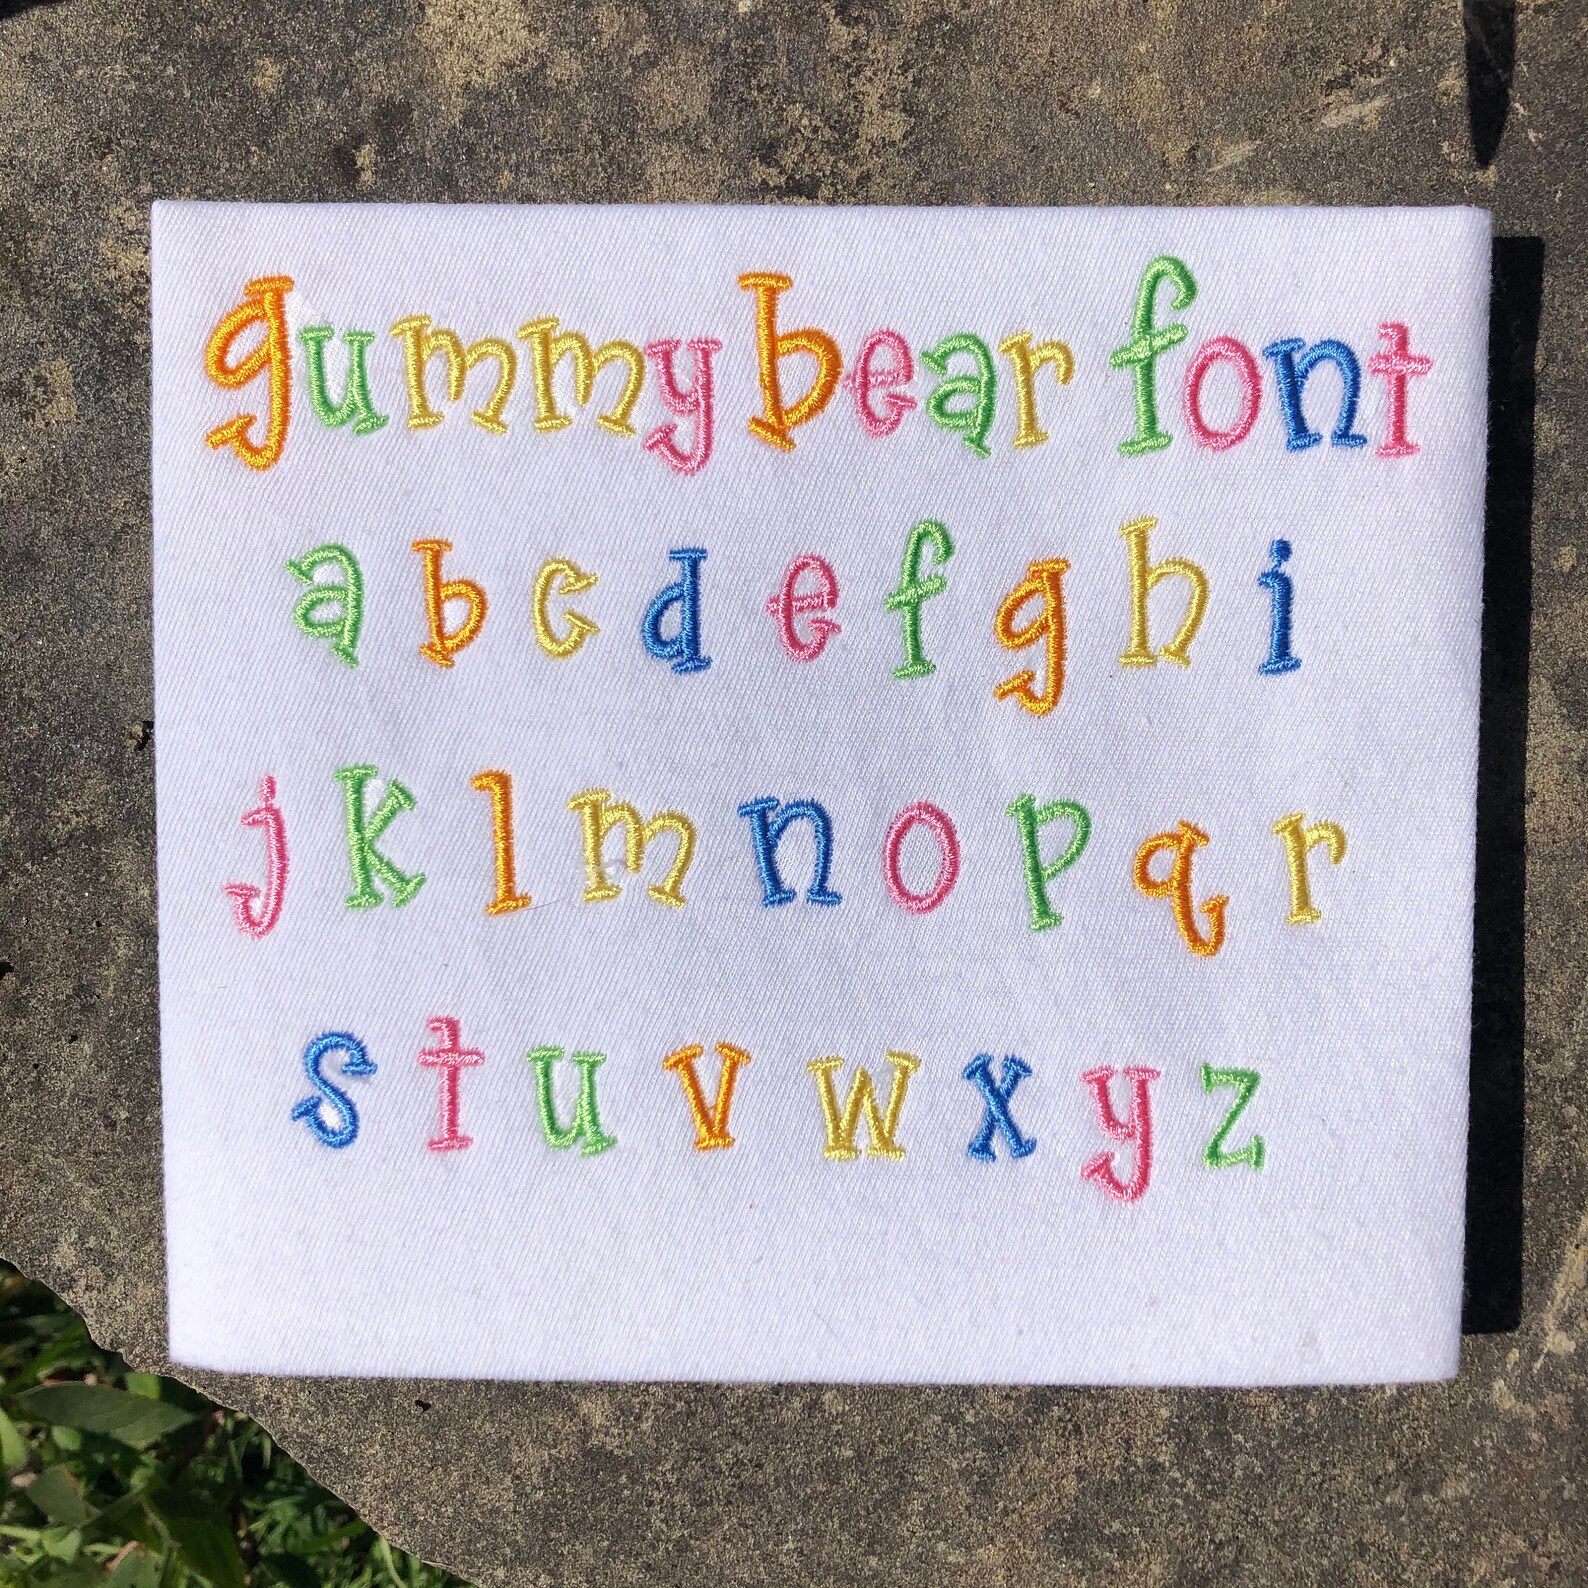 gummy bear font
a b c d e f g h i
j k l m n o p q r
s t u v w x y z